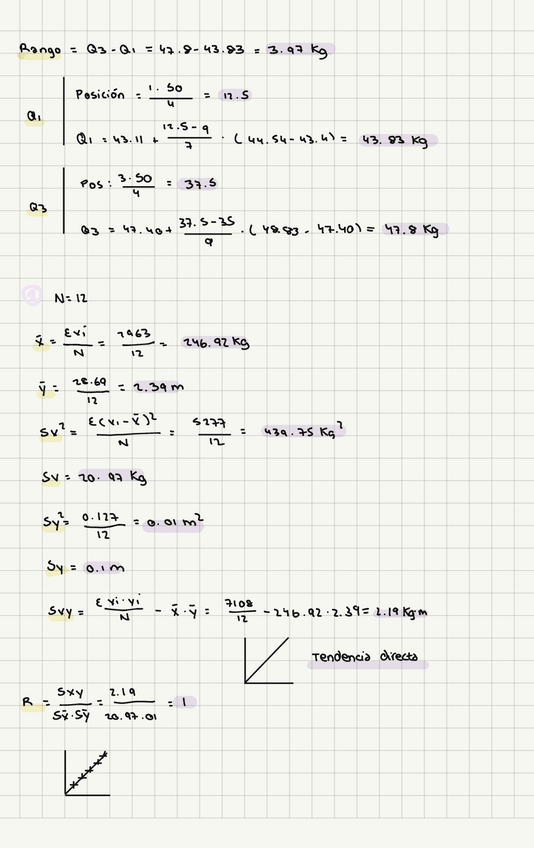 Rango = Q3 - Q1 = 47.8 - 43.83 = 3.97 Kg
Posición = 1.50/4 = 12.5
Q1
Q1 = 43.11 + 12.5-9/7 · (44.54 - 43.4) = 43.83 Kg
Pos: 3.50/4 = 37.5
Q3
Q3 = 47.40 + 37.5-35/9 · (48.83 - 47.40) = 47.8 Kg
N = 12
x̄ = Σxi/N = 2963/12 = 246.92 Kg
ȳ = 28.69/12 = 2.39 m
Sx² = Σ(xi - x̄)²/N = 5277/12 = 439.75 Kg²
Sx = 20.97 Kg
Sy² = 0.127/12 = 0.01 m²
Sy = 0.1 m
Sxy = Σxi·yi/N - x̄·ȳ = 7108/12 - 246.92·2.39 = 2.19 Kg m
Tendencia directa
R = Sxy/Sx̄·Sȳ = 2.19/20.97.01 = 1